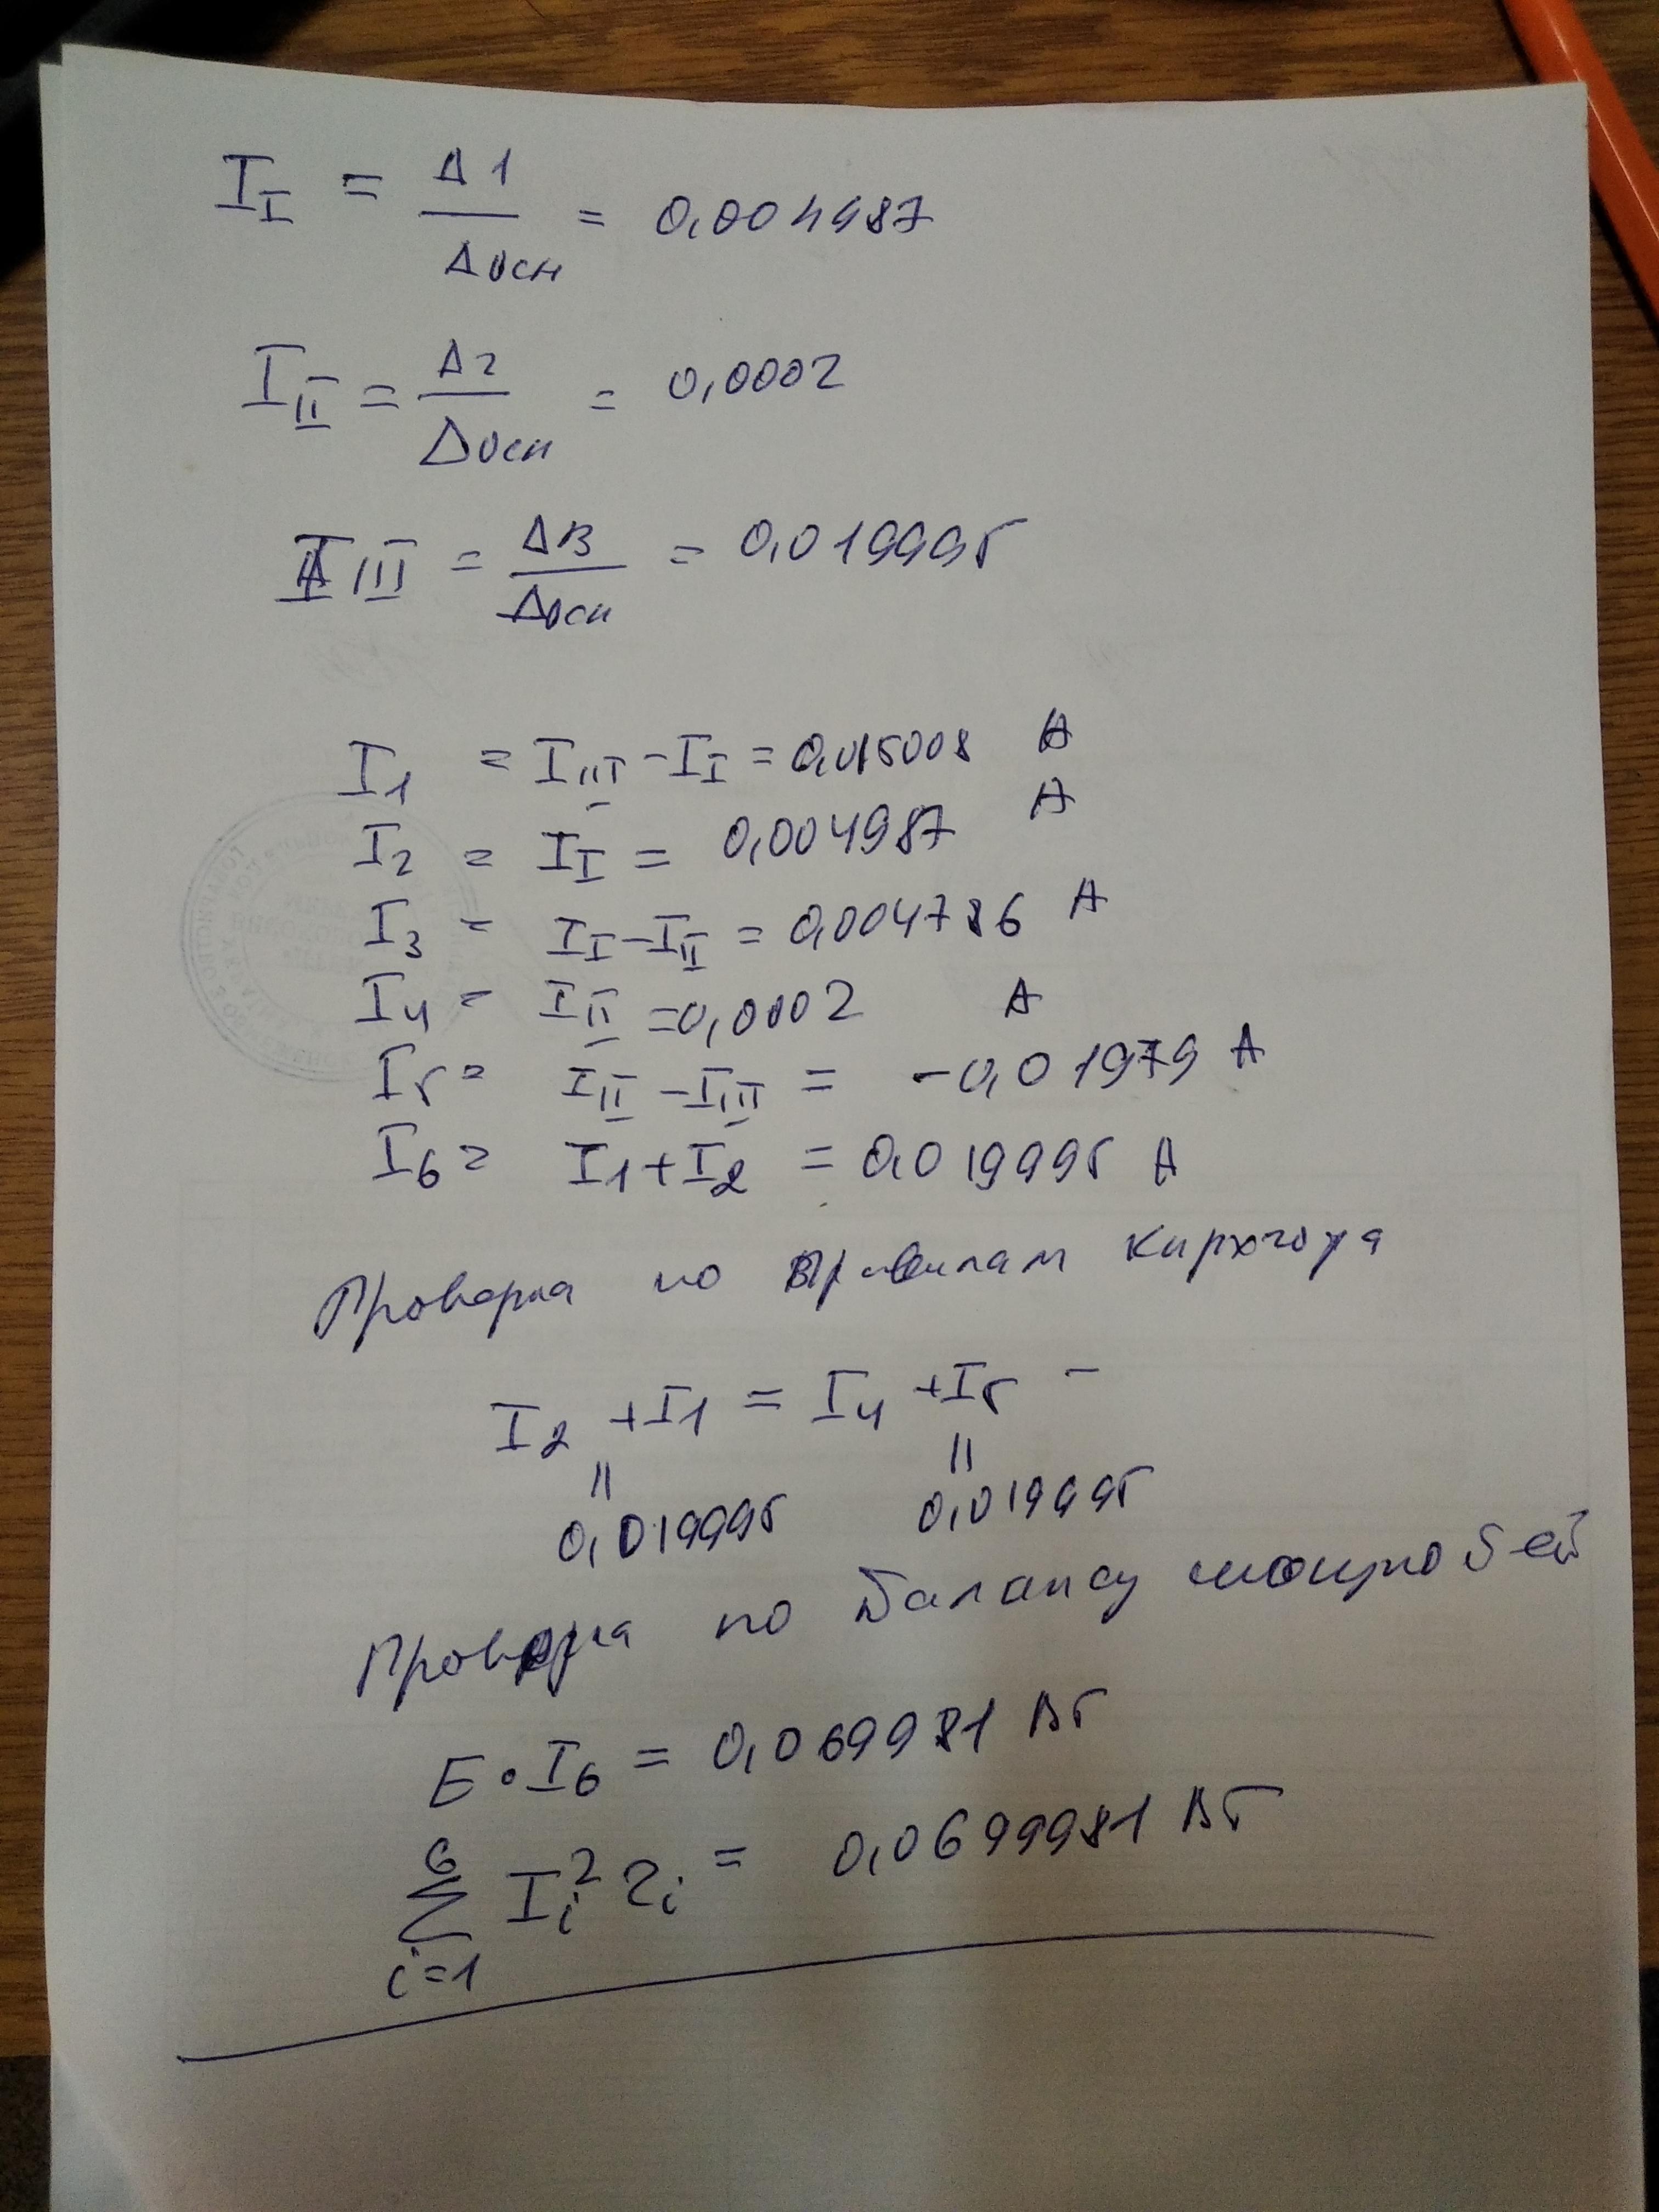 I_I = Δ1 / Δосн = 0,004987
I_II = Δ2 / Δосн = 0,0002
I_III = Δ3 / Δосн = 0,019995
I1 = I_III - I_I = 0,015008 А
I2 = I_I = 0,004987 А
I3 = I_I - I_II = 0,004786 А
I4 = I_II = 0,0002 А
I5 = I_II - I_III = -0,01979 А
I6 = I1 + I2 = 0,019995 А
Проверка по правилам Кирхгофа
I2 + I1 = I4 + I5 -
" "
0,019995 0,019995
Проверка по балансу мощностей
E • I6 = 0,069981 Вт
6
Σ I_i² r_i = 0,0699981 Вт
i=1